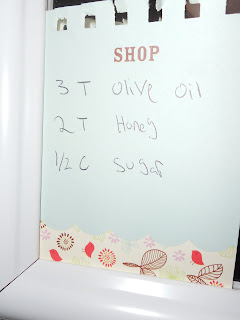 SHOP
3 T Olive Oil
2 T Honey
1/2 C Sugar